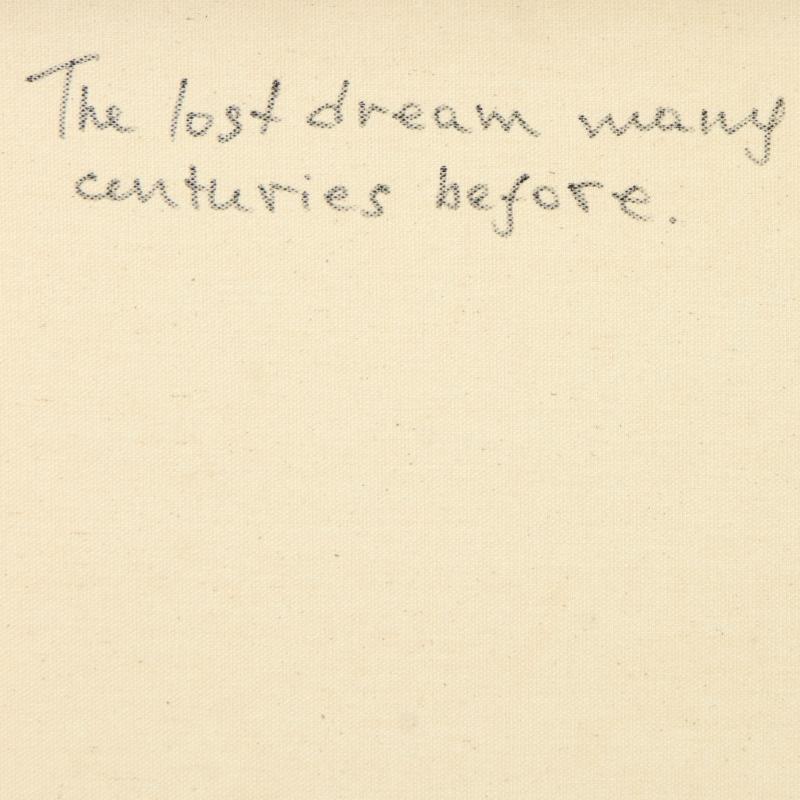 The lost dream many
centuries before.